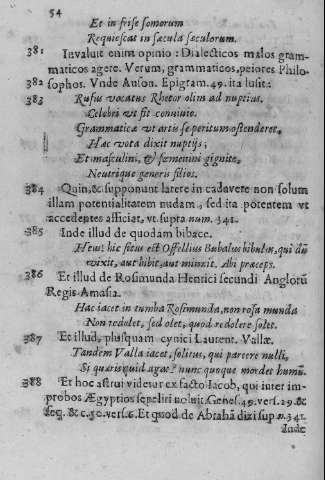 54
Et in frise somorum
Requiescat in sæcula sæculorum.
381 Invaluit enim opinio : Dialecticos malos gram-
maticos agere. Verum, grammaticos, peiores Philo-
382 sophos. Vnde Auson. Epigram. 49. ita lusit:
383 Rufus vocatus Rhetor olim ad nuptias.
Celebri vt fit conuiuio.
Grammaticæ vt artis se peritum ostenderet,
Hac vota dixit nuptijs;
Et masculini, & fœmenini gignite,
Neutrique generis filios.
384 Quin, & supponunt latere in cadavere non solum
illam potentialitatem nudam, sed ita potentem vt
accedentes afficiat, vt supra num. 341.
385 Inde illud de quodam bibace.
Heus hic situs est Offellius Bubalus bibulus, qui dū
vixit, aut bibit, aut minxit. Abi præceps.
386 Et illud de Rosimunda Henrici secundi Anglorū
Regis Amasia.
Hac iacet in tumba Rosimunda, non rosa munda
Non redolet, sed olet, quod redolere solet.
387 Et illud, plusquam cynici Laurent. Vallæ.
Tandem Valla iacet, solitus, qui parcere nulli,
Si quæris quid agat? nunc quoque mordet humū.
388 Et hoc astrui videtur ex facto Iacob, qui inter im-
probos Ægyptios sepeliri noluit Genes. 49. vers. 29. &
seq. & c. 50. vers. 6. Et quod de Abrahā dixi sup n. 341.
Inde